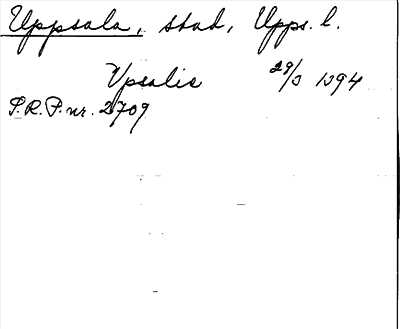 Uppsala, stad, Upps. l.
Upsalis 29/3 1394
S.R.P. nr. 2709